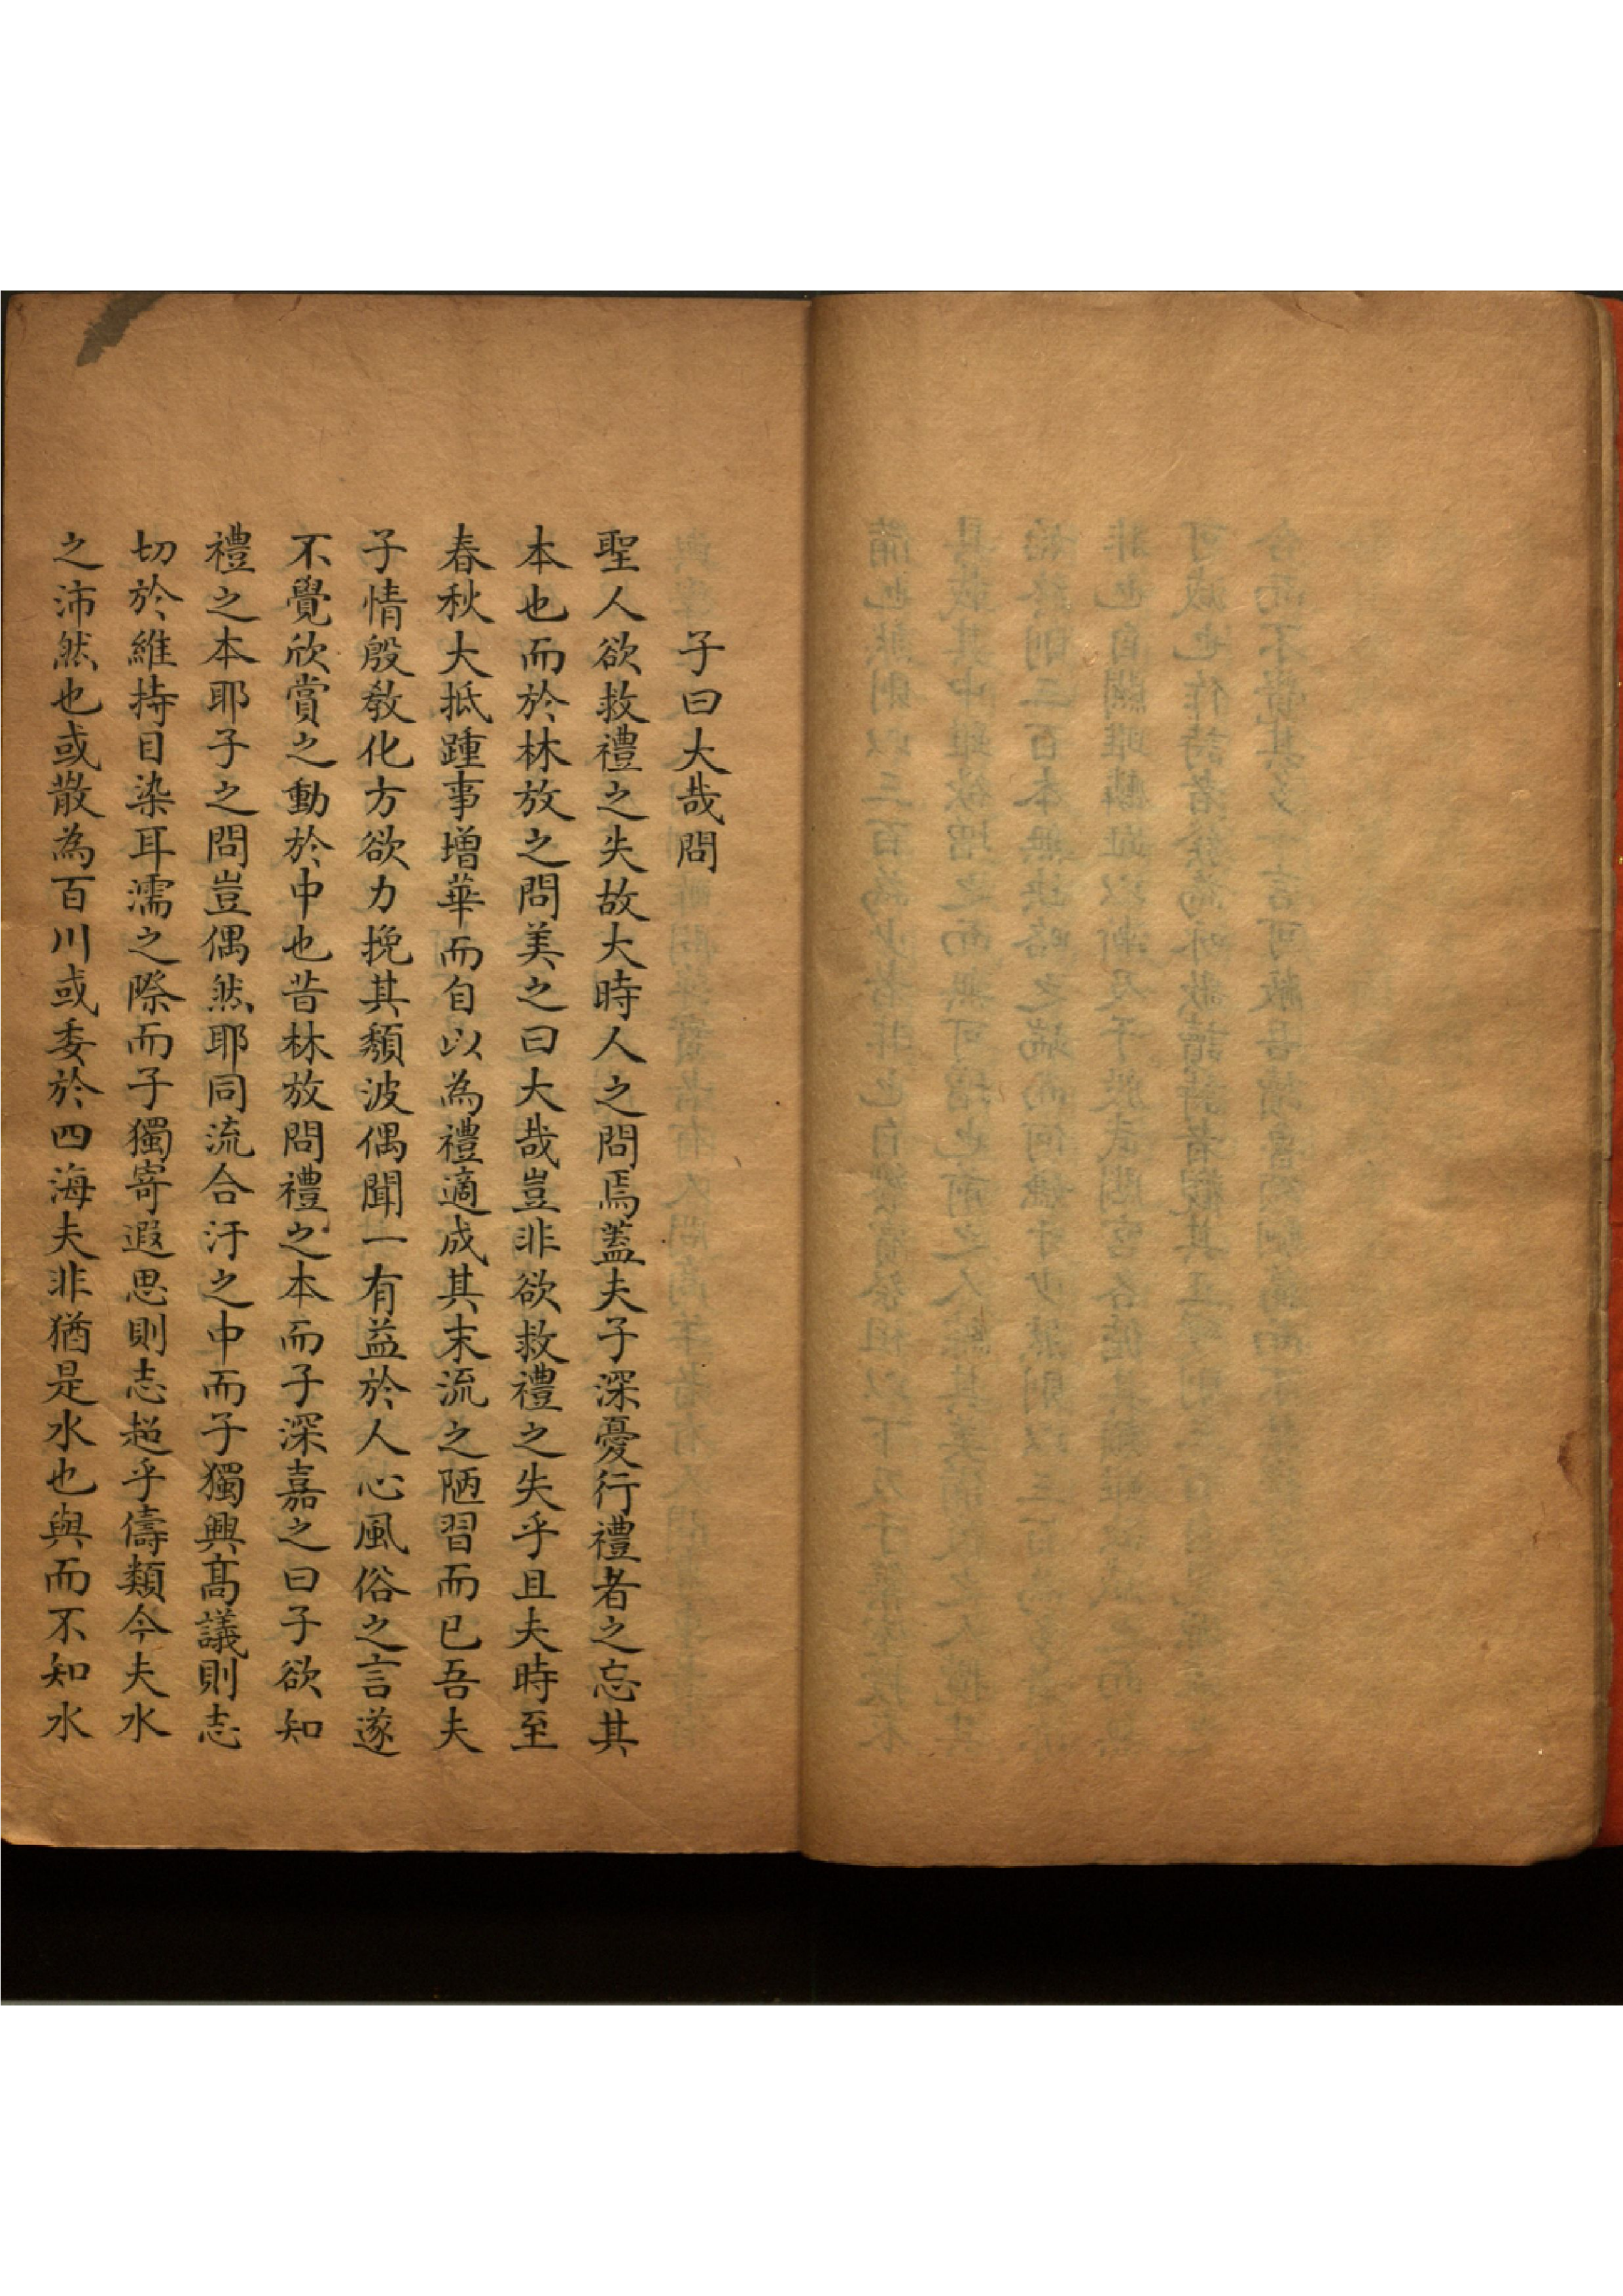 子曰大哉問
聖人欲救禮之失故大時人之問焉蓋夫子深憂行禮者之忘其
本也而於林放之問美之曰大哉豈非欲救禮之失乎且夫時至
春秋大抵踵事增華而自以為禮適成其末流之陋習而已吾夫
子情殷教化方欲力挽其頽波偶聞一有益於人心風俗之言遂
不覺欣賞之動於中也昔林放問禮之本而子深嘉之曰子欲知
禮之本耶子之問豈偶然耶同流合汙之中而子獨興高議則志
切於維持目染耳濡之際而子獨寄遐思則志超乎儔類今夫水
之沛然也或散為百川或委於四海夫非猶是水也與而不知水